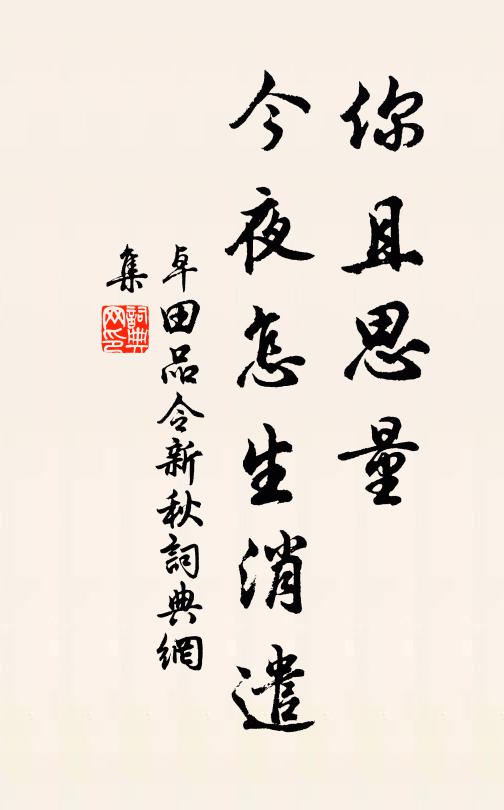 你且思量
今夜怎生消遣
卓田品令新秋詞典網
集
詞典网印